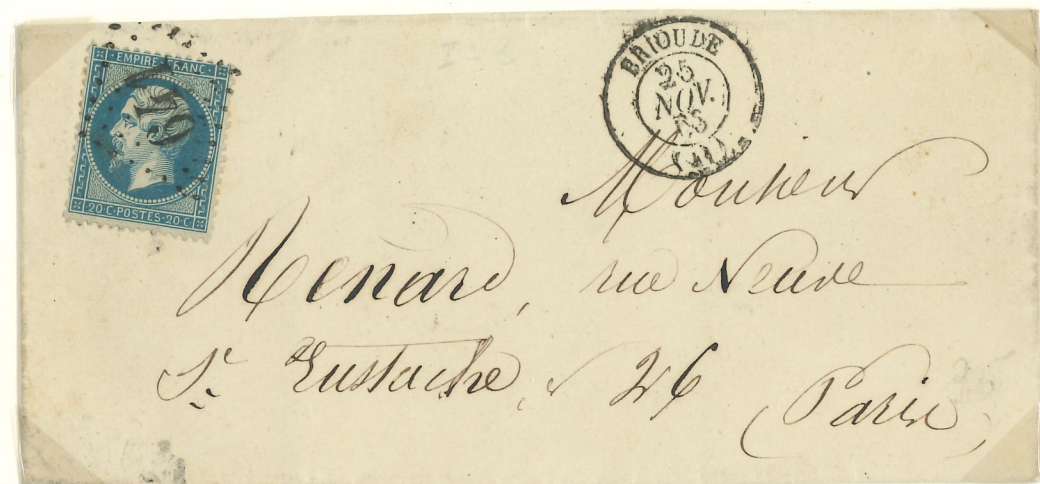 EMPIRE FRANC
649
20 C·POSTES·20 C
BRIOUDE
25
NOV.
(41)
Monsieur
Renard, rue Neuve
St. Eustache, 26
Paris